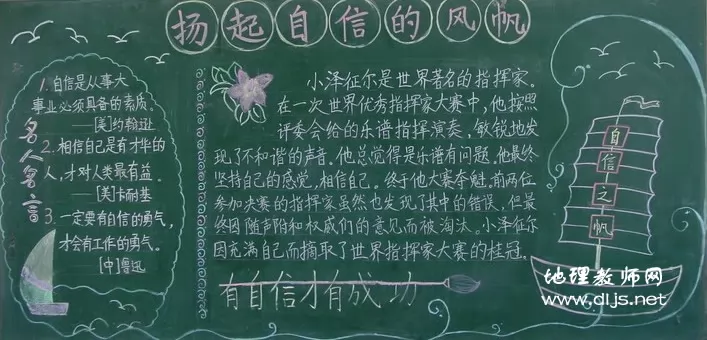 扬起自信的风帆
名人名言
1.自信是从事大
事业必须具备的素质。
——[美]约翰逊
2.相信自己是有才华的
人,才对人类最有益。
——[美]卡耐基
3.一定要有自信的勇气,
才会有工作的勇气。
[中]鲁迅
小泽征尔是世界著名的指挥家。
在一次世界优秀指挥家大赛中,他按照
评委会给的乐谱指挥演奏,敏锐地发
现了不和谐的声音。他总觉得是乐谱有问题,他最终
坚持自己的感觉,相信自己。终于他大赛夺魁。前两位
参加决赛的指挥家虽然也发现了其中的错误,但最
终因随声附和权威们的意见而被淘汰。小泽征尔
因充满自己而摘取了世界指挥家大赛的桂冠。
有自信才有成功
自信之帆
地理教师网
www.dljs.net